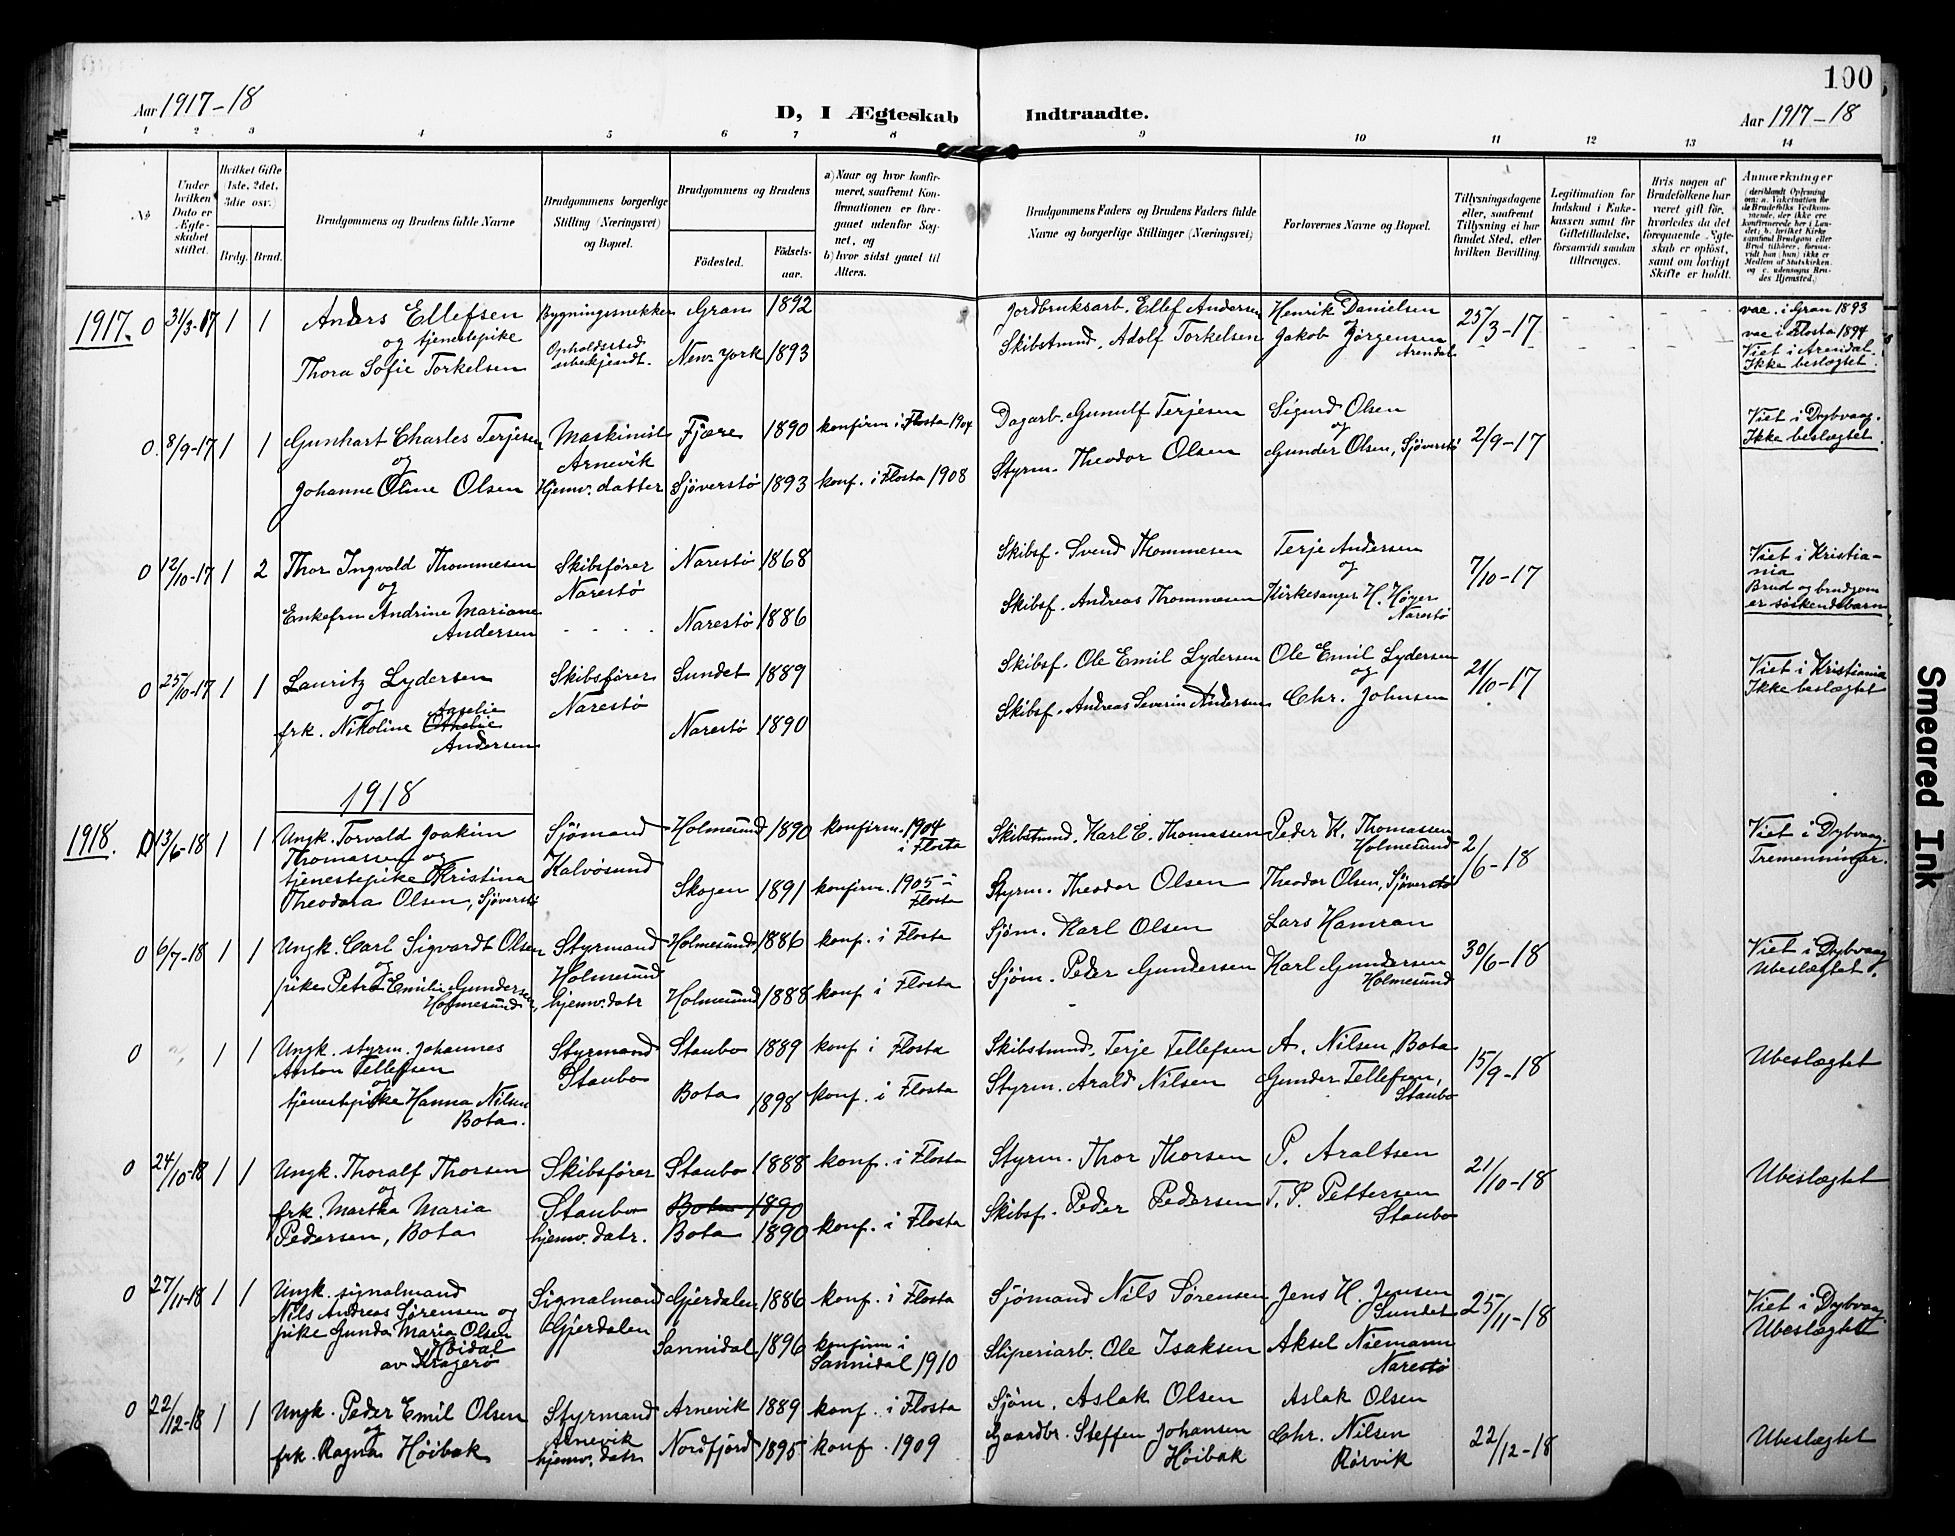 100
Aar 1917-18
D, I Ægteskab
Indtraadte.
Aar 1917-18
1 2 3 4 5 6 7 8 9 10 11 12 13 14
No
Under hvilken Dato er Ægteskabet stiftet.
Hvilket Gifte 1ste, 2det, 3die osv.
Brdg. Brud.
Brudgommens og Brudens fulde Navne
Brudgommens borgerlige Stilling (Næringsvei) og Bopæl.
Brudgommens og Brudens
Födested.
Födselsaar.
a) Naar og hvor konfirmeret, saafremt Konfirmationen er foregaaet udenfor Sognet, og
b) hvor sidst gaaet til Alters.
Brudgommens Faders og Brudens Faders fulde Navne og borgerlige Stillinger (Næringsvei)
Forlovernes Navne og Bopæl.
Tillysningsdagene eller, saafremt Tillysning ei har fundet Sted, efter hvilken Bevilling.
Legitimation for Indskud i Enkekassen samt for Giftetilladelse, forsaavidt saadan tiltrænges.
Hvis nogen af Brudefolkene har været gift för, hvorledes da det foregaaende Ægteskab er oplöst, samt om lovligt Skifte er holdt.
Anmærkninger
(deriblandt Oplysning om: a. Vakcination for de Brudefolks Vedkommende, der ikke ere konfirmerede her i Landet; b. hvilket Kirkesamfund Brudgom eller Brud tilhörer, forsaavidt han (hun) ikke er Medlem af Statskirken og c. udensogns Brudes Hjemsted.)
1917. 0 31/3-17 1 1 Anders Ellefsen og tjenestepike Thora Sofie Torkelsen
Bygningssnekker Opholdssted ubekjendt.
Gran 1892
New York 1893
Jordbruksarb. Ellef Andersen
Skibstmd. Adolf Torkelsen
Henrik Danielsen og Jakob Jörgensen Arendal
25/3-17
vac. i Gran 1893
vac i Flosta 1894
Viet i Arendal.
Ikke beslægtet.
0 8/9-17 1 1 Gunhart Charles Terjesen og Johanne Oline Olsen
Maskinist Arnevik
Hjemv. datter
Fjære 1890 konfirm. i Flosta 1904
Sjöverstö 1893 konf. i Flosta 1908
Dagarb. Gunulf Terjesen
Styrm. Theodor Olsen
Sigurd Olsen og Gunder Olsen, Sjöverstö
2/9-17
Viet i Dybvaag.
Ikke beslægtet.
0 12/10-17 1 2 Thor Ingvald Thommesen og Enkefru Andrine Mariane Andersen
Skibsförer Narestö
Narestö 1868
Narestö 1886
Skibsf. Svend Thommesen
Skibsf. Andreas Thommesen
Terje Andersen og Kirkesanger H. Höyer Narestö
7/10-17
Viet i Kristiania
Brud og brudgom er söskendebarn
0 25/10-17 1 1 Lauritz Lydersen og frk. Nikoline Othelie Aagelie Andersen
Skibsförer Narestö
Sundet 1889
Narestö 1890
Skibsf. Ole Emil Lydersen
Skibsf. Andreas Severin Andersen
Ole Emil Lydersen og Chr. Johnsen
21/10-17
Viet i Kristiania
Ikke beslægtet
1918
1918. 0 13/6-18 1 1 Ungk. Torvald Joakim Thomassen og tjenestepike Kristina Theodora Olsen, Sjöverstö
Sjömand Kalvösund
Holmesund 1890 konfirm. 1904 i Flosta
Skogen 1891 konfirm. 1905 i Flosta
Skibstmd. Karl E. Thomassen
Styrm. Theodor Olsen
Peder K. Thomassen Holmesund
Theodor Olsen, Sjöverstö
2/6-18
Viet i Dybvaag
Tremenninger.
0 6/7-18 1 1 Ungk. Carl Sigvardt Olsen og pike Petra Emilie Gundersen, Holmesund
Styrmand Holmesund
hjemv. datr
Holmesund 1886 konf. i Flosta
Holmesund 1888 konf. i Flosta
Sjöm. Karl Olsen
Sjöm. Peder Gundersen
Lars Hamran
Karl Gundersen Holmesund
30/6-18
Viet i Dybvaag
Ubeslægtet.
0 1 1 Ungk. styrm. Johannes Anton Tellefsen og tjenestepike Hanna Nilsen Bota.
Styrmand Staubo
Staubo 1889 konf i Flosta
Bota 1898 konf. i Flosta
Skibstmd. Terje Tellefsen
Styrm. Arald Nilsen
A. Nilsen, Bota
Gunder Tellefsen, Staubo
15/9-18
Ubeslægtet
0 24/10-18 1 1 Ungk. Thoralf Thorsen og frk. Martha Maria Pedersen, Bota
Skibsförer Staubo
hjemv. datr.
Staubo 1888 konf. i Flosta
Bota 1890
Bota 1890 konf. i Flosta
Styrm. Thor Thorsen
Skibsf. Peder Pedersen
P. Araltsen
T. P. Pettersen Staubo
21/10-18
Ubeslægtet
0 27/11-18 1 1 Ungk. signalmand Nils Andreas Sörensen og pike Gunda Maria Olsen av Kragerö
Signalmand Gjerdalen
Gjerdalen 1886 konf. i Flosta
Sannidal 1896 konfirm i Sannidal 1910
Sjömand Nils Sörensen
Sliperiarb. Ole Isaksen
Jens H. Jensen Sundet
Aksel Niemann Narestö
25/11-18
Viet i Dybvaag
Ubeslægtet
0 22/12-18 1 1 Ungk. Peder Emil Olsen og frk. Ragna Höibak
Styrmand Arnevik
hjemv. datr
Arnevik 1889 konf. i Flosta
Nordfjord 1895 konf. 1909
Sjöm. Aslak Olsen
Gaardbr. Steffen Johansen Höibak
Aslak Olsen
Chr. Nilsen Rörvik
22/12-18
Ubeslægtet
Smeared Ink